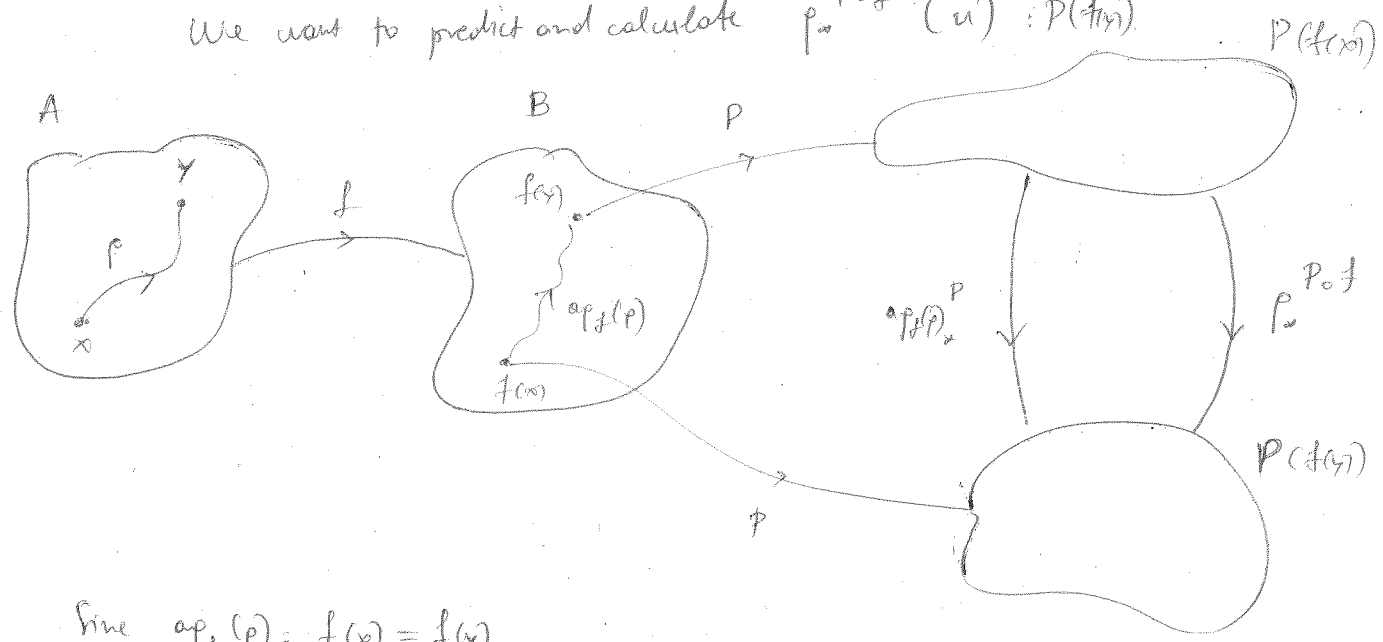 We want to predict and calculate p* P∘f (u) : P(f(y)).
P(f(x))
A
B
P
y
f(y)
f
p
ap_f(p)
x
f(x)
ap_f(p)*^P
p*^P∘f
P(f(y))
P
Sine ap_f(p): f(x) = f(y)